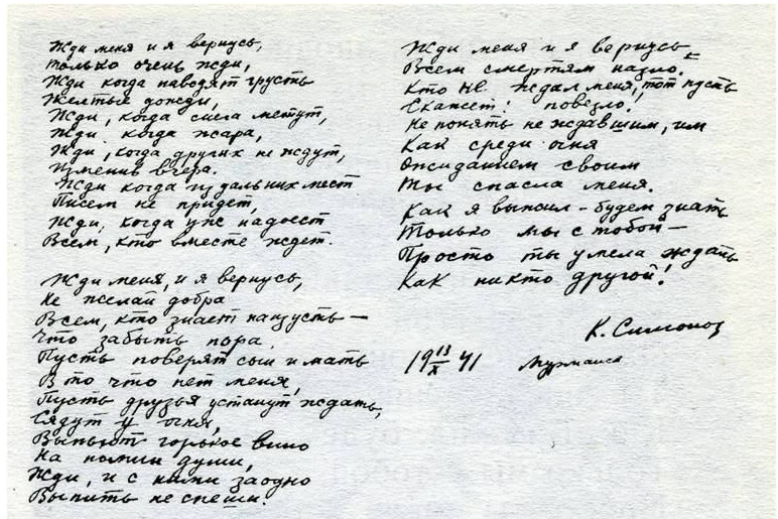 Жди меня и я вернусь,
только очень жди,
Жди когда наводят грусть
Желтые дожди,
Жди, когда снега метут,
Жди когда жара,
Жди, когда других не ждут,
Изменив вчера.
Жди когда из дальних мест
Писем не придет,
Жди, когда уже надоест
Всем, кто вместе ждет.
Жди меня, и я вернусь,
Не желай добра
Всем, кто знает наизусть –
Что забыть пора.
Пусть поверят сын и мать
В то что нет меня,
Пусть друзья устанут ждать,
Сядут у огня,
Выпьют горькое вино
На помин души,
Жди, и с ними заодно
Выпить не спеши.
Жди меня и я вернусь
Всем смертям назло.
Кто не ждал меня, тот пусть
Скажет: повезло!
Не понять не ждавшим, им
Как среди огня
Ожиданием своим
Ты спасла меня.
Как я выжил – будем знать
Только мы с тобой –
Просто ты умела ждать
Как никто другой!
К. Симонов
19 13/X 41 Мурманск